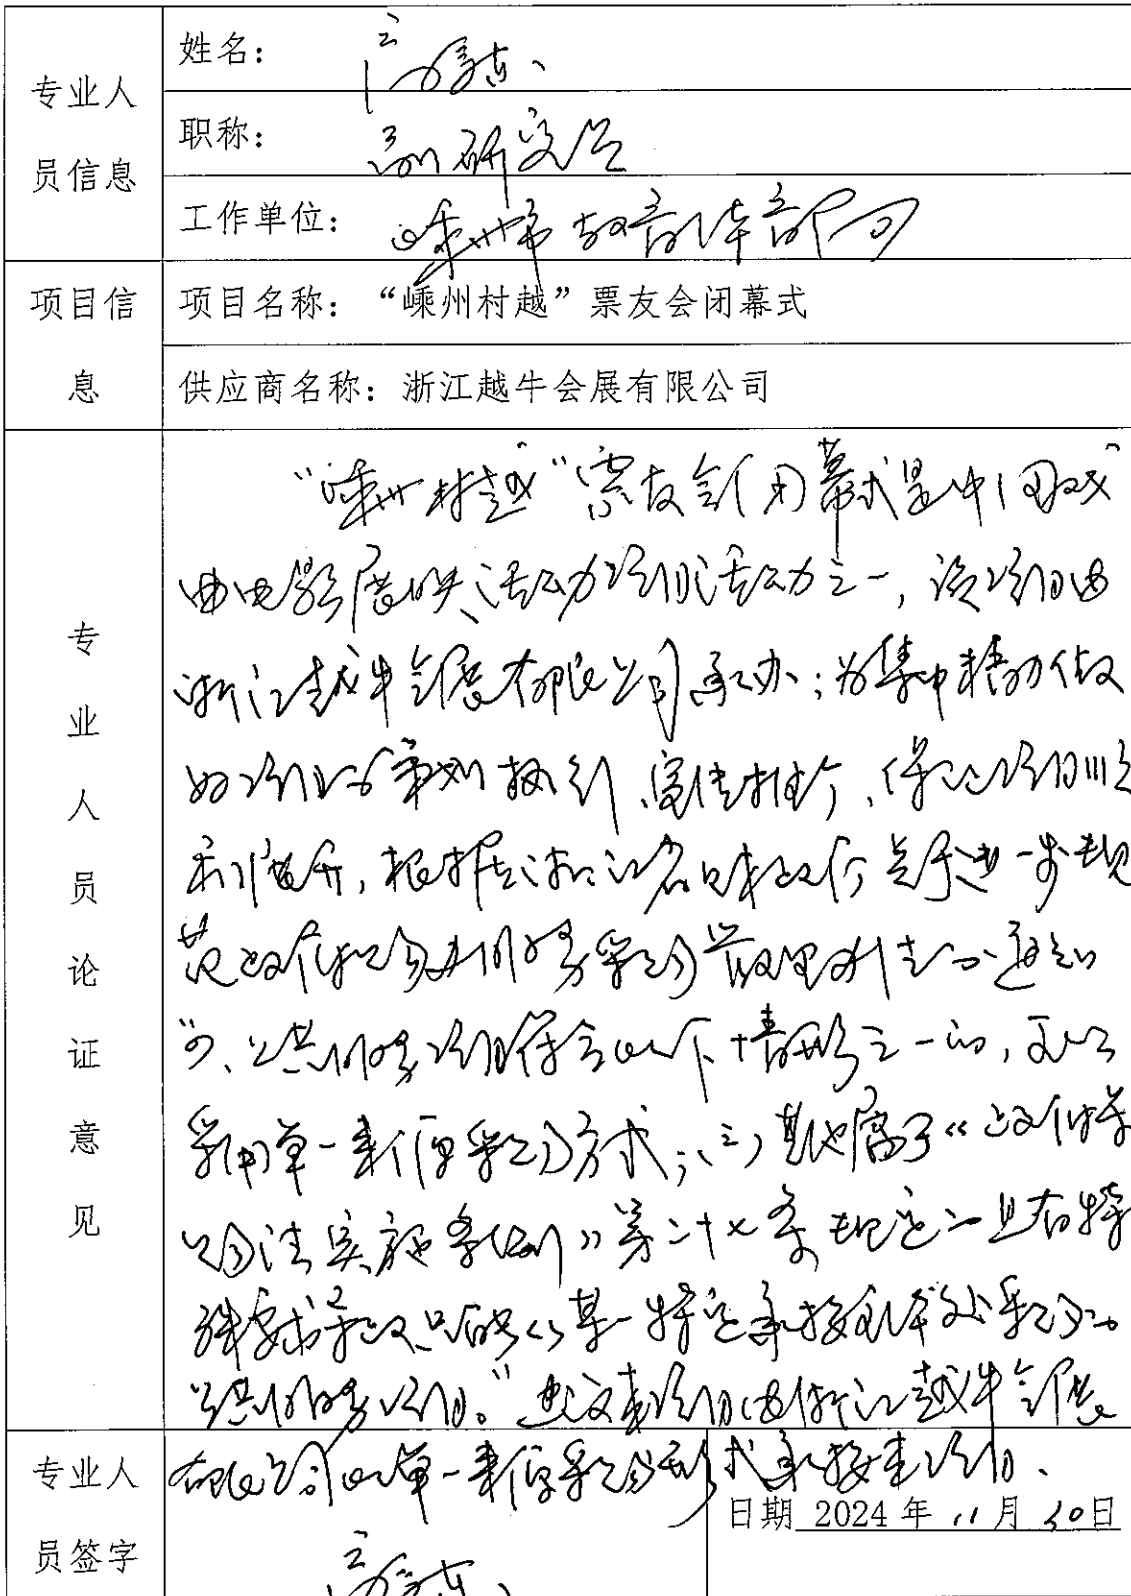 专业人员信息
姓名：
职称：副研究员
工作单位：嵊州市教育体育局
项目信息
项目名称：“嵊州村越”票友会闭幕式
供应商名称：浙江越牛会展有限公司
专业人员论证意见
“嵊州村越”票友会闭幕式是中国戏
曲电影展映活动项目活动之一，该项目由
浙江越牛会展有限公司承办；为集中精力做
好项目的策划执行、宣传推介、保证项目顺
利展开，根据浙江省财政厅关于进一步规
范政府购买服务采购管理的通知
“、公共服务项目符合以下情形之一的，可以
采用单一来源采购方式；（三）其他属于《政府采
购法实施条例》第二十七条规定的且有特
殊要求导致只能从某一特定承接主体处采购的
公共服务项目。”建议该项目由浙江越牛会展
有限公司以单一来源采购形式承接本项目、
专业人员签字
日期 2024 年 11 月 30 日